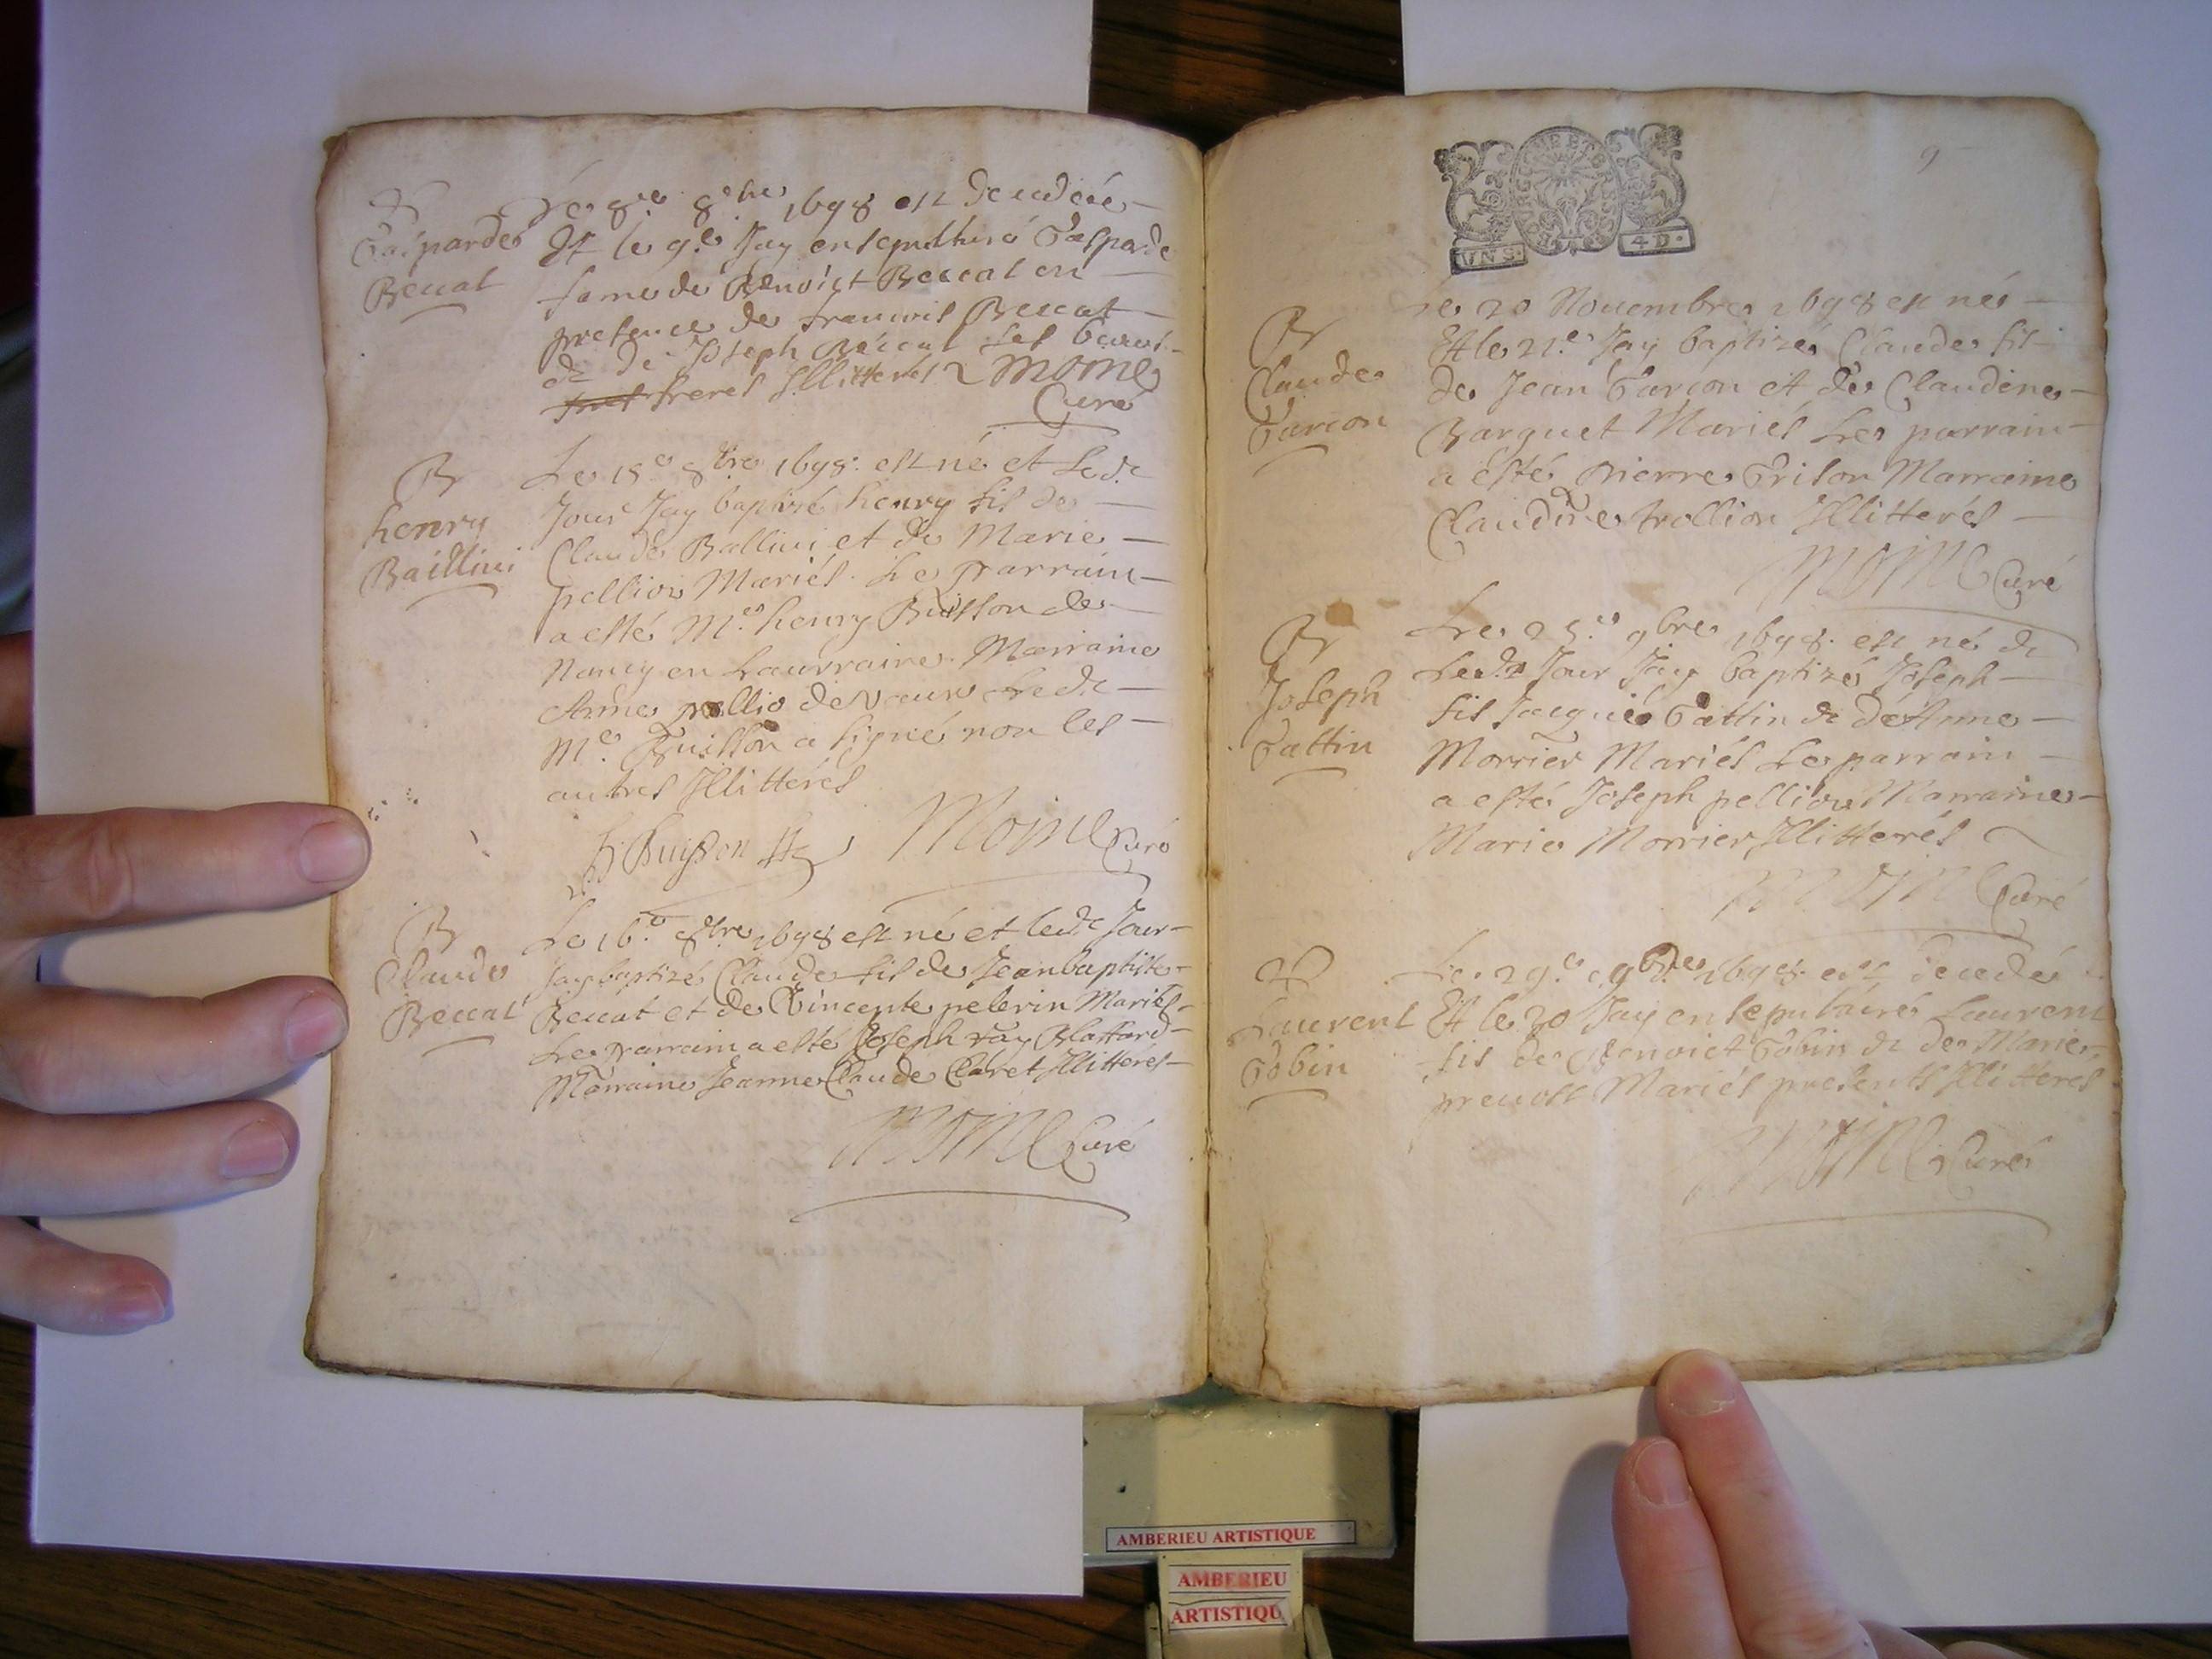 Gasparde
Beccat
Le 8e 8bre 1698 est decedée
Et le 9e Jay ensepulturé Gasparde
fame de Benoict Beccat en
presence de francois Beccat
& de Joseph Beccat ses beaus
freres Illitterés Moine
Curé
B
henry
Baillivi
Le 15e 8bre 1698 est né et Ledt
Jour Jay baptizé henry fil de
Claude Ballivi et de Marie
pellion Mariés Le parrain
a esté Me henry Buisson de
Nancy en Laurraine Marraine
Anne pellio de Vaux Ledt
Me Buisson a signé non les
autres Illitterés
h Buisson Moine Curé
B
Claude
Beccat
Le 16e 8bre 1698 est né et ledt Jour
Jay baptizé Claude fil de Jean baptiste
Beccat et de Vincente pelerin Mariés
Le parrain a esté Joseph Tay
Marraine Jeanne Claude Claret Illitterés
Moine Curé
9
UNS. 4 D.
B
Claude
Garcon
Le 20 Nouembre 1698 est né
Et le 21e Jay baptizé Claude fil
de Jean Garcon et de Claudine
Barquet Mariés Le parrain
a esté pierre Grison Marraine
Claudine trollion Illitterés
Moine Curé
B
Joseph
Gattin
Le 25e 9bre 1698 est né &
Ledt Jour Jay baptizé Joseph
fil Jacque Gattin & dAnne
Morrier Mariés Le parrain
a esté Joseph pellion Marraine
Marie Morrier Illitterés
Moine Curé
Laurent
Gobin
Le 29e 9bre 1698 est decedé
Et le 30 Jay ensepulturé Laurent
fil de Benoict Gobin & de Marie
preuost Mariés presents Illitterés
Moine Curé
AMBERIEU ARTISTIQUE
AMBERIEU
ARTISTIQU